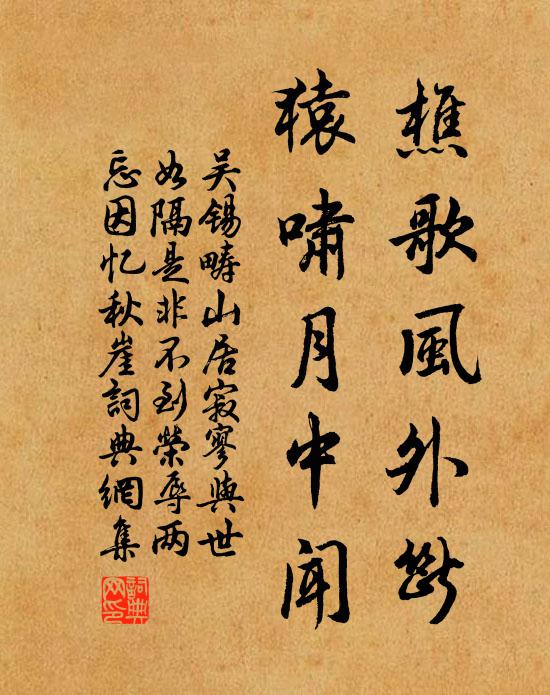 樵歌風外斷
猿嘯月中聞
吴锡畴山居寂寥與世
如隔是非不到榮辱两
忘因忆秋崖詞典網集
詞典网印